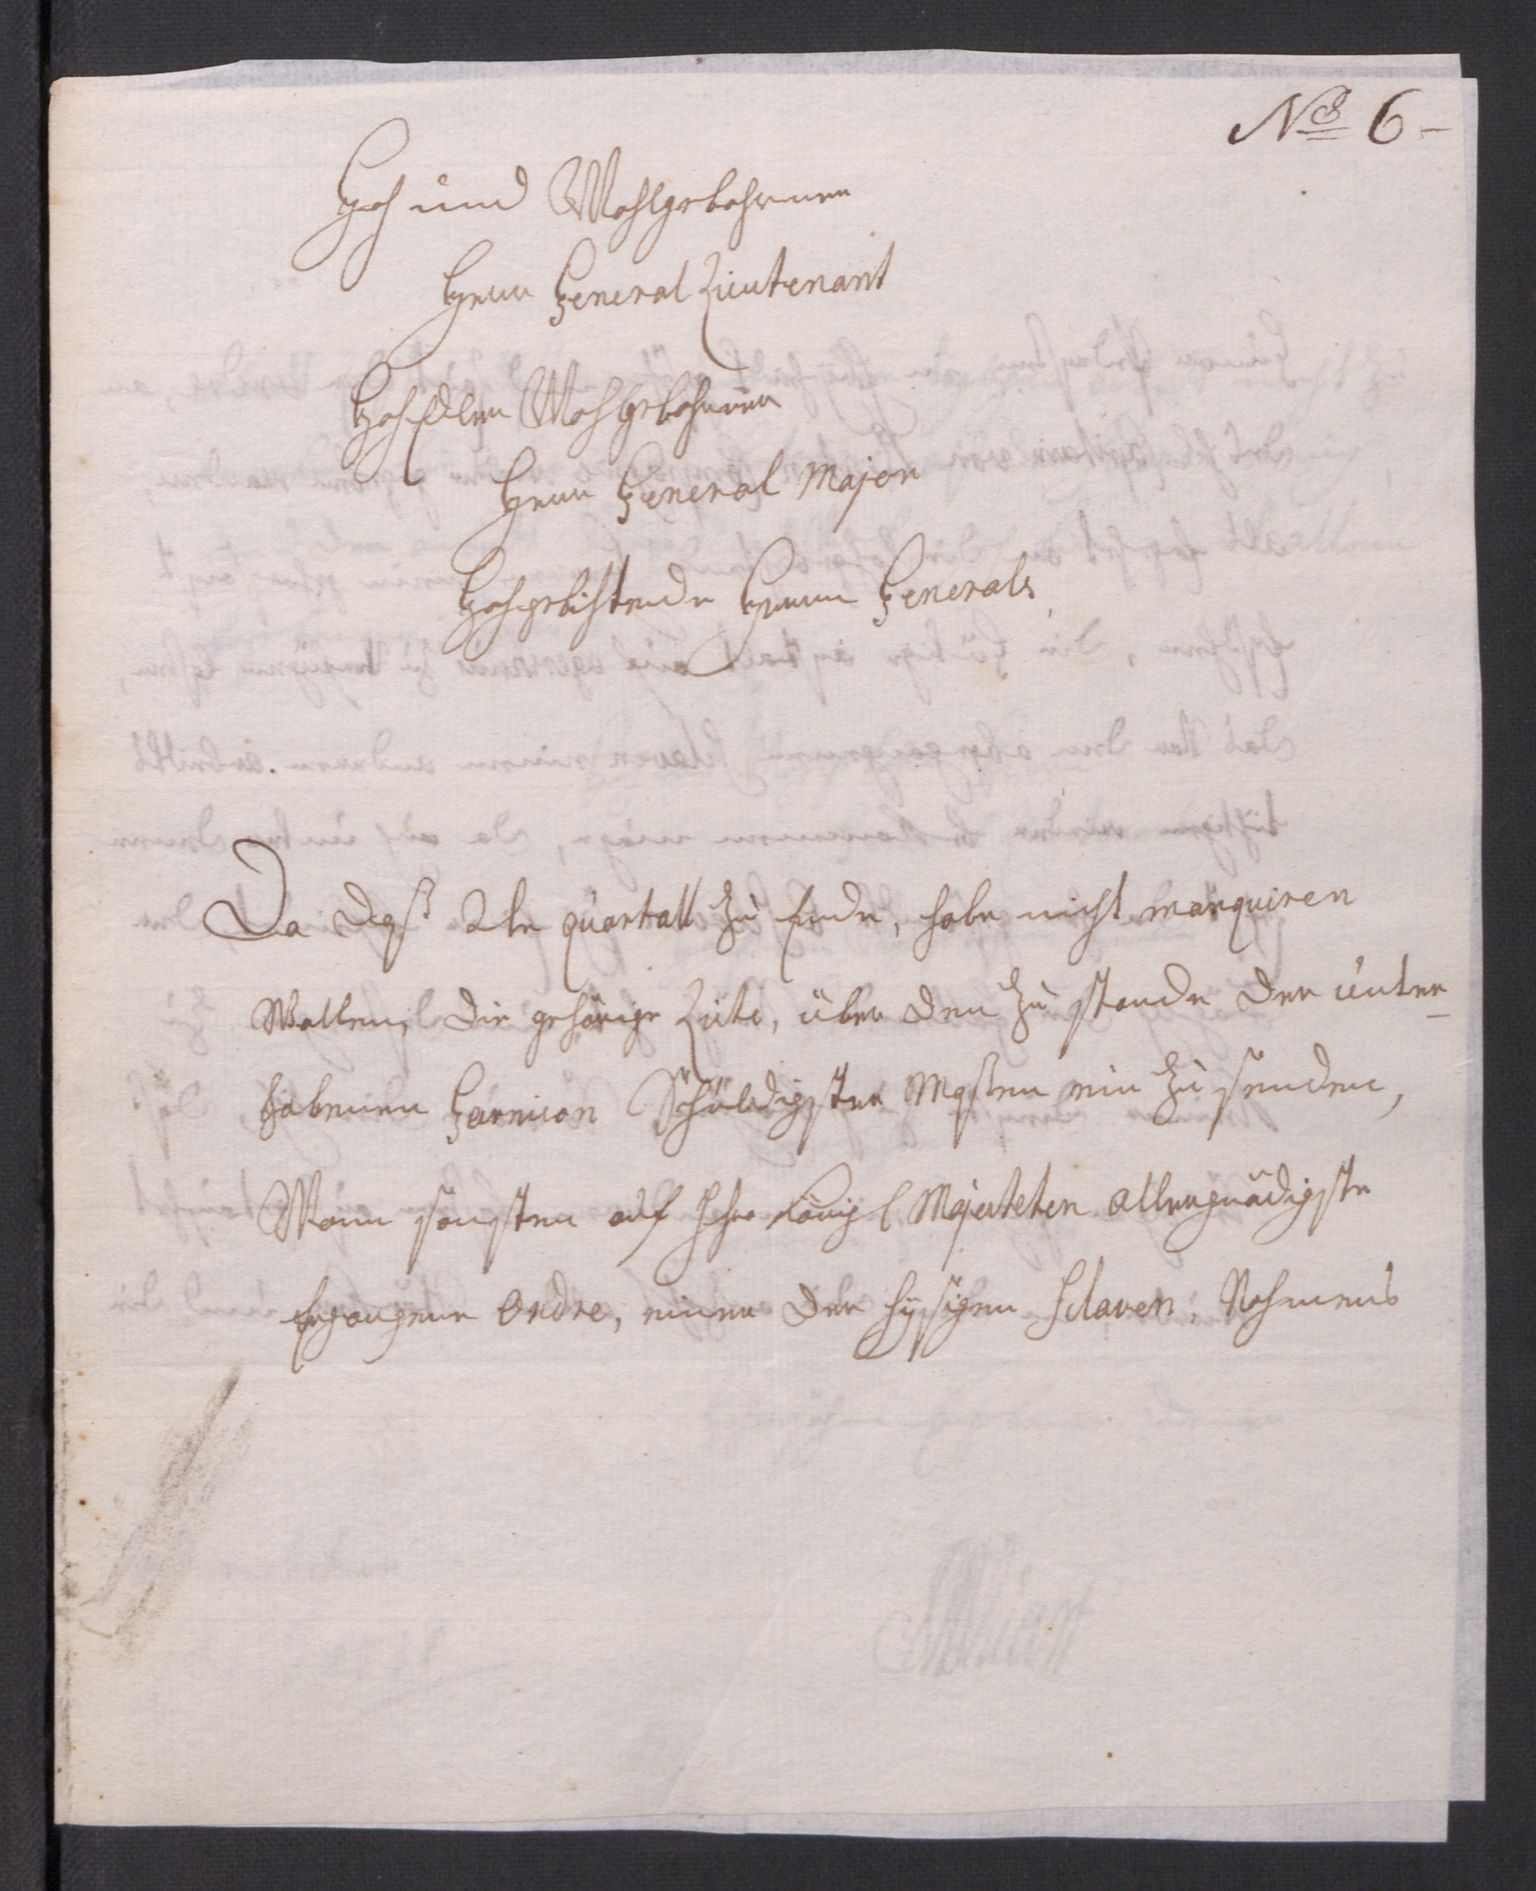 No 6 -
Hoch und Wohlgebohrner
Herr General Lieutenant
Hoch Edler Wohlgebohrner
Herr General Major
Hochgebiehtende Herren Generals
Da das 2te quartall zu Ende, habe nicht manquiren
Wollen, die gehörige Liste, über den Zu stande der unter-
habenen Garnison Schuldigster Massen ein zu senden,
Wann sonsten auf Ihro Königl Majesteten allergnädigste
Ergangene Ordre, einer der hysigen Sclaven, Nahmens